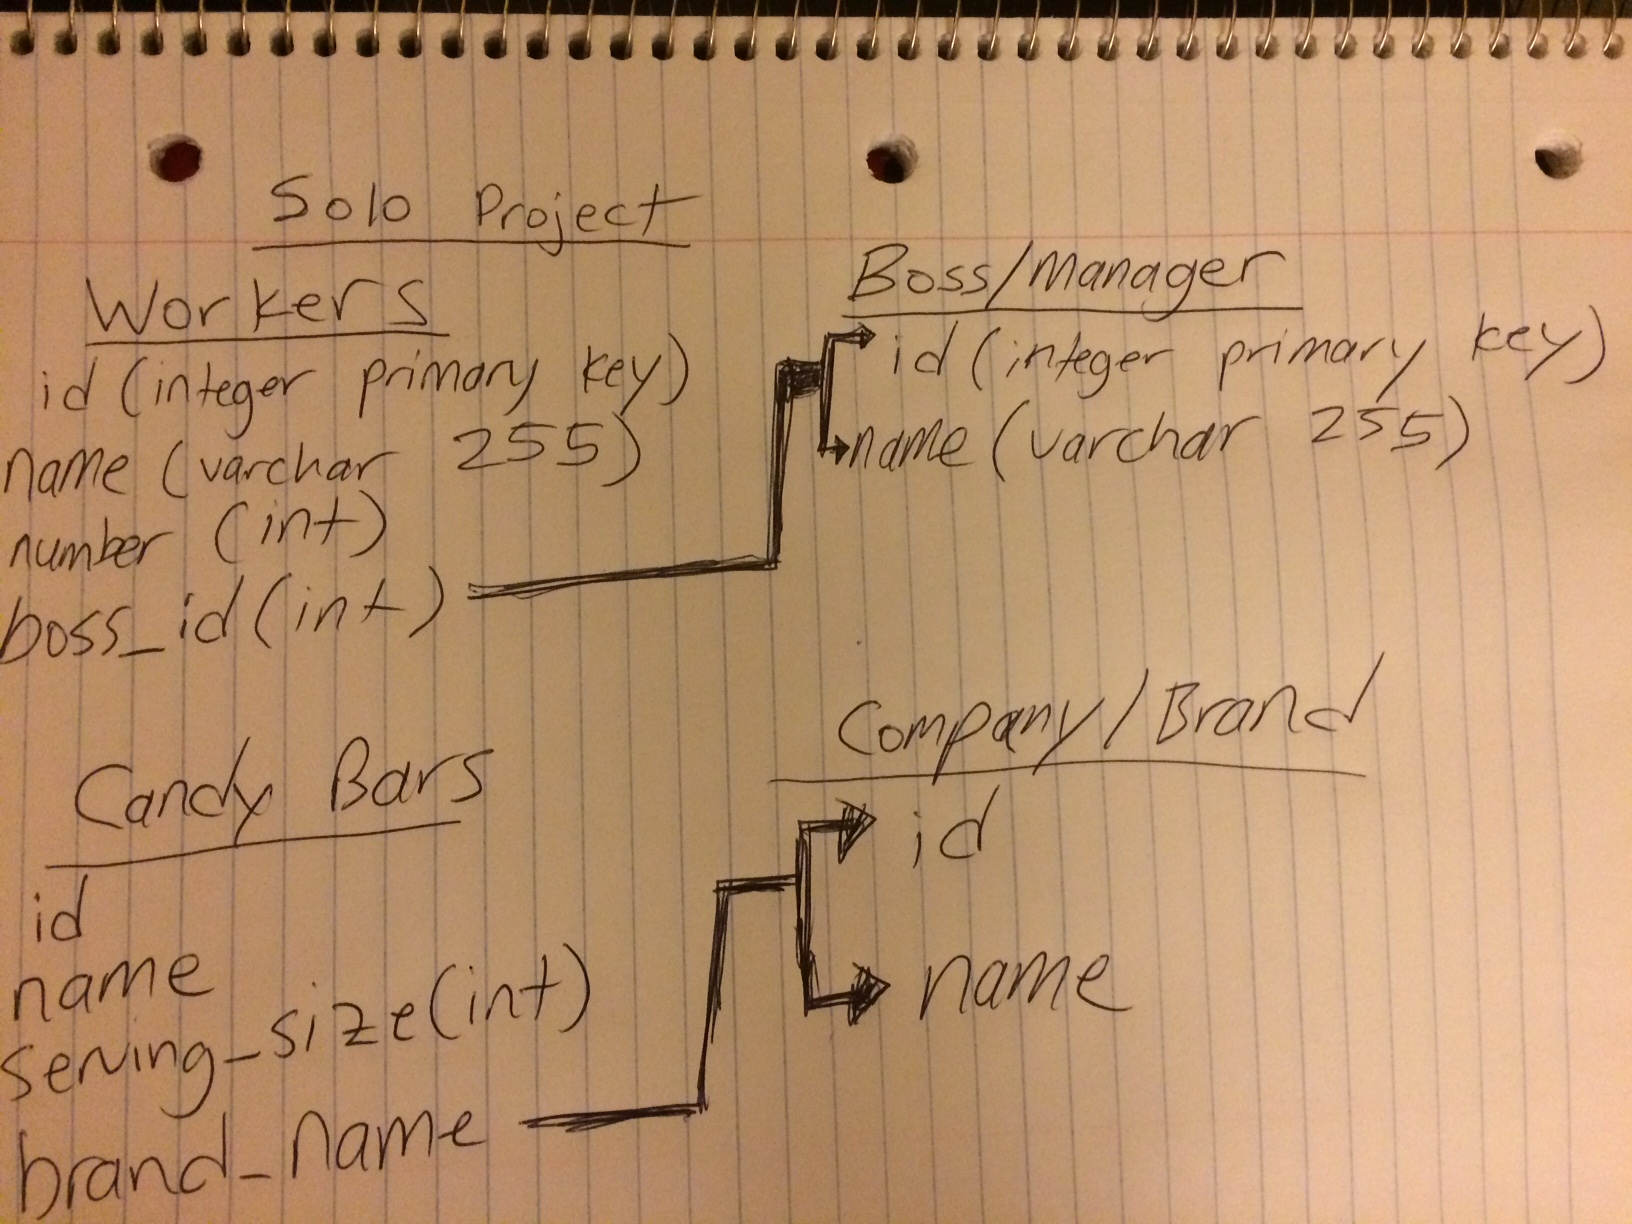 Solo Project
Workers
id (integer primary key)
name (varchar 255)
number (int)
boss_id (int)
Boss/Manager
id (integer primary key)
name (varchar 255)
Candy Bars
id
name
serving_size (int)
brand_name
Company/Brand
id
name